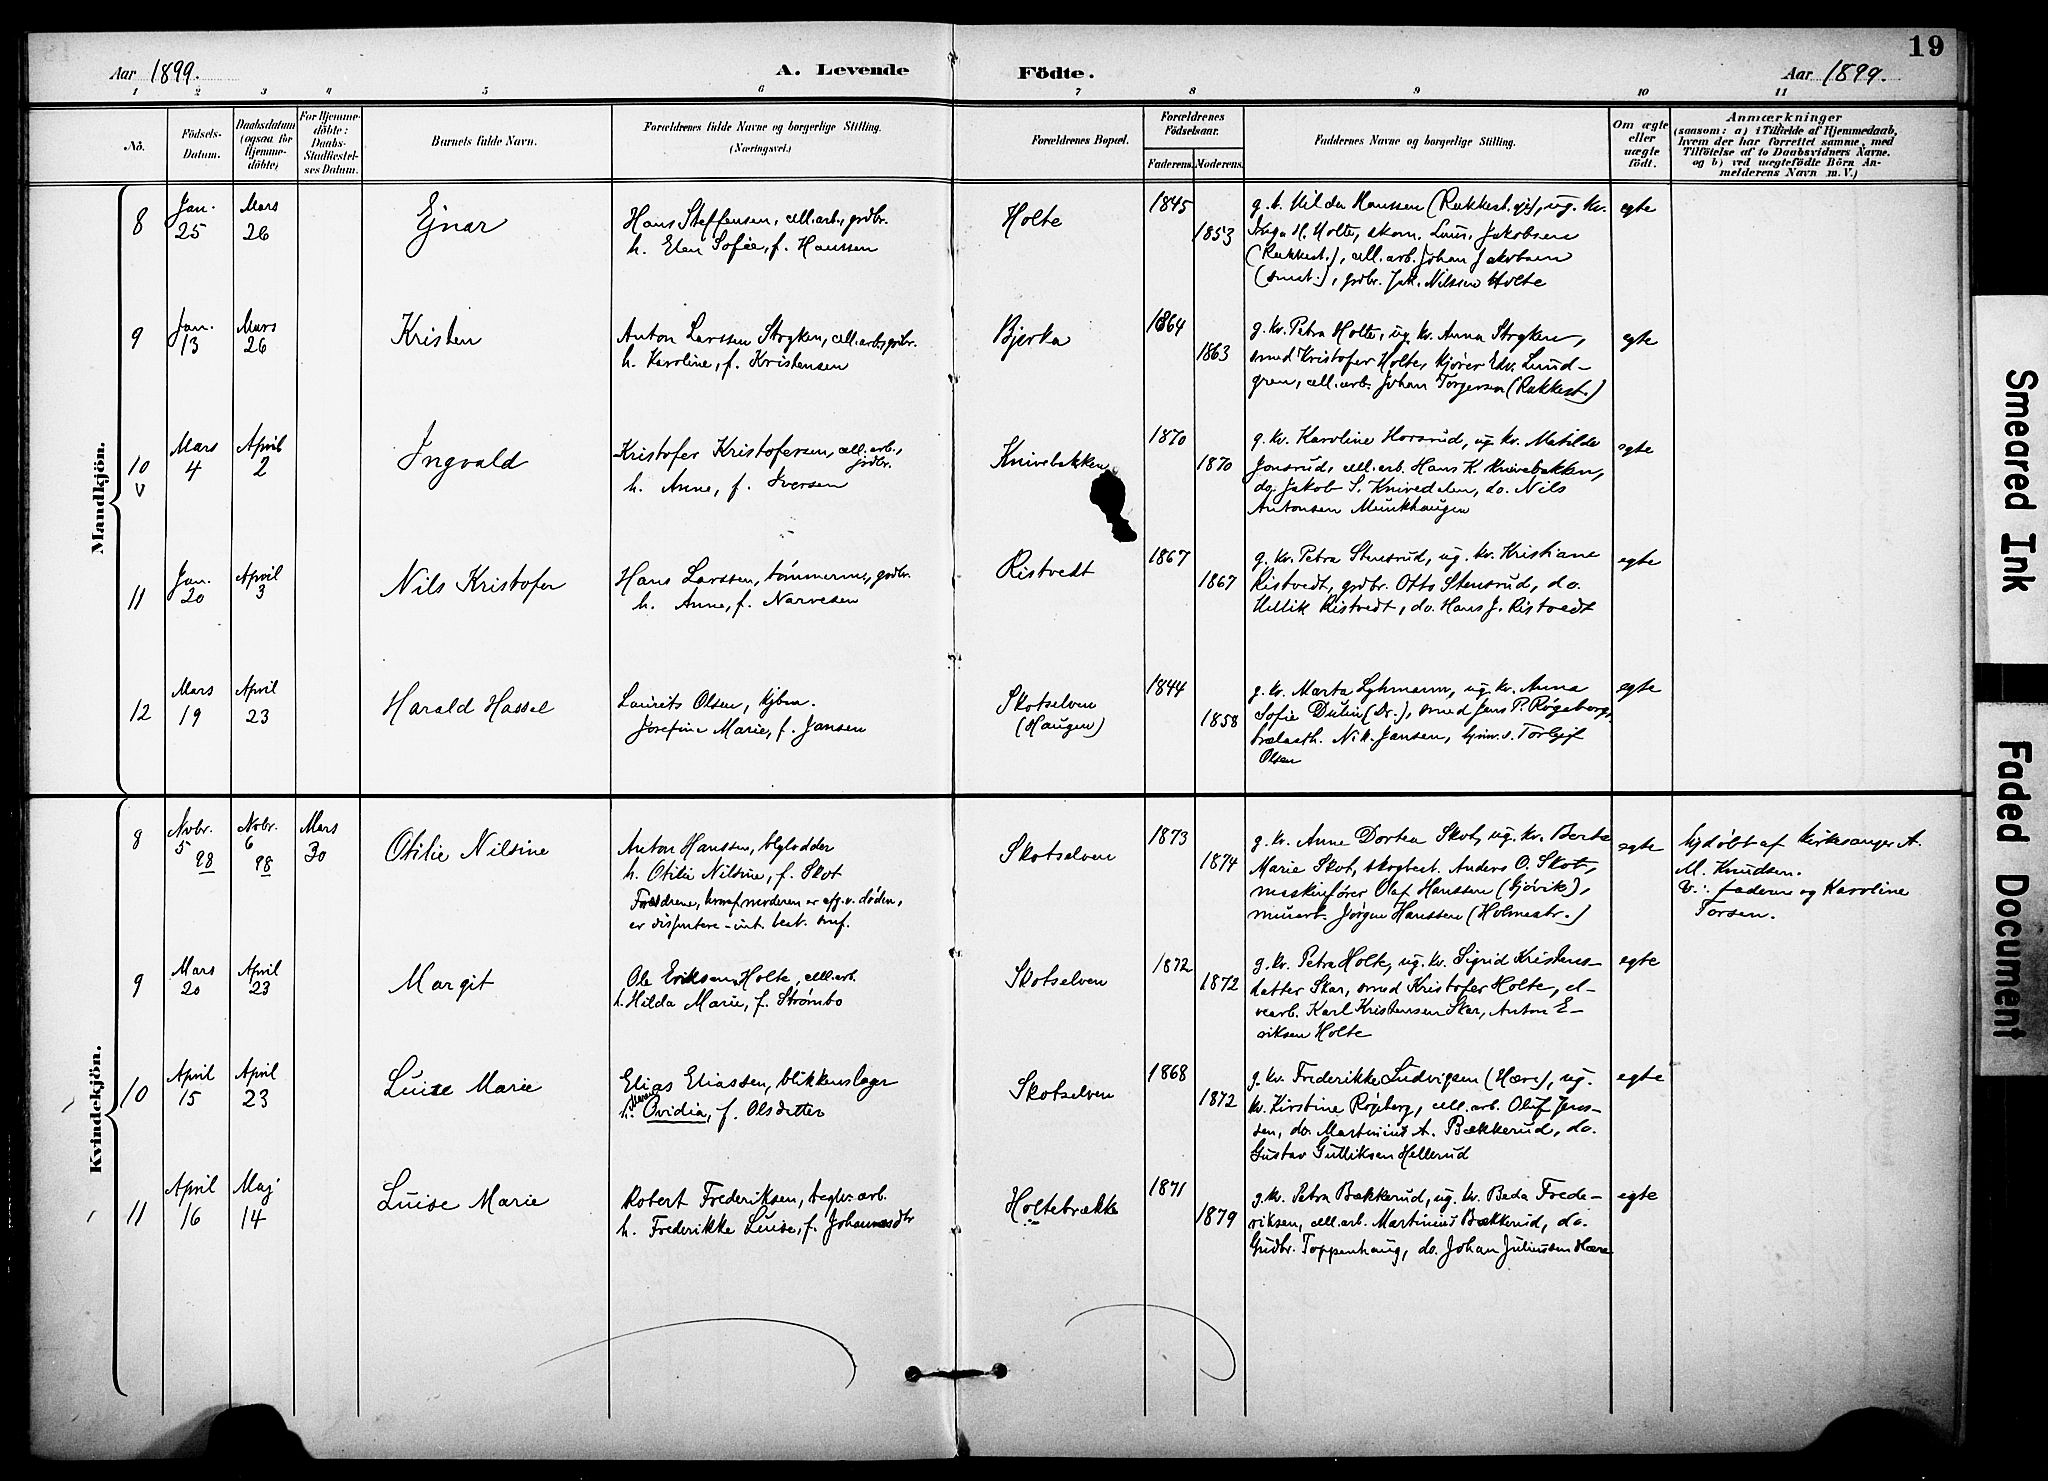 19
Aar 1899.
A. Levende Födte.
Aar 1899.
1 2 3 4 5 6 7 8 9 10 11
No.
Födsels-Datum.
Daabsdatum (ogsaa for Hjemme-döbte)
For Hjemme-döbte: Daabs-Stadfæstel-ses Datum.
Barnets fulde Navn.
Forældrenes fulde Navne og borgerlige Stilling.
(Næringsvei.)
Forældrenes Bopæl.
Forældrenes Fødselsaar.
Faderens. Moderens.
Faddernes Navne og borgerlige Stilling.
Om ægte eller uægte født.
Anmærkninger
(saasom: a) i Tilfælde af Hjemmedaab,
hvem der har forrettet samme, med
Tilføielse af to Daabsvidners Navne.
og b) ved uægtefödte Börn An-
melderens Navn m. V.)
Mandkjön.
8 Jan. 25 Mars 26 Ejnar
Hans Steffensen, cell.arb., grdbr.
h. Elen Sofie, f. Hanssen
Holte 1845 1853
g. k. Hilda Hanssen (Rakkest.), ug. kv.
Inga H. Holte, skom. Laur. Jakobsen
(Rakkest.), cell.arb. Johan Jakobsen
(smst.), grdbr. Jak. Nilssen Holte
egte
9 Jan. 13 Mars 26 Kristen
Anton Larssen Stryken, cell.arb., grdbr.
h. Karoline, f. Kristensen
Bjerka 1864 1863
g. kv. Petra Holte, ug. kv. Anna Stryken,
smed Kristofer Holte, kjører Edv. Lund-
gren, cell.arb. Johan Torgersen (Rakkest.)
egte
10 v Mars 4 April 2 Ingvald
Kristofer Kristofersen, cell.arb., grdbr.
h. Anne, f. Iversen
Knivebakken 1870 1870
g. kv. Karoline Horsrud, ug. kv. Matilde
Jonsrud, cell.arb. Hans K. Knivebakken,
do. Jakob S. Knivedalen, do. Nils
Antonsen Munkhaugen
egte
11 Jan. 20 April 3 Nils Kristofer
Hans Larssen, tømmerm., grdbr.
h. Anne, f. Narvesen
Ristvedt 1867 1867
g. kv. Petra Stensrud, ug. kv. Kristiane
Ristvedt, grdbr. Otto Stensrud, do.
Ullik Ristvedt, do. Hans J. Ristvedt
egte
12 Mars 19 April 23 Harald Hassel
Laurits Olsen, kjbm.
Josefine Marie, f. Jansen
Skotselven
(Haugen)
1844 1858
g. kv. Marta Lyhmann, ug. kv. Anna
Sofie Dulin (Dr.), smed Jens P. Røgeberg,
trælasth. Nik. Jansen, Torleif
Olsen
egte
Kvindekjön.
8 Novbr. 5 98 Nobr. 6 98 Mars 30 Otilie Nilsine
Anton Hanssen,
h. Otilie Nilsine, f. Skot
Forældrene, hvoraf moderen er afg. v. døden,
er dissentere
Skotselven 1873 1874
g. kv. Anne Dortea Skot, ug. kv. Berte
Marie Skot, skogbest. Anders O. Skot,
maskinfører Olaf Hanssen (Gjøvik),
murarb. Jørgen Hanssen (Holmestr.)
egte
hjdøbt af kirkesanger A.
M. Knudsen.
V.: faderen og Karoline
Torsen.
9 Mars 20 April 23 Margit
Ole Eriksen Holte, cell.arb.
h. Hilda Marie, f. Strømbo
Skotselven 1872 1872
g. kv. Petra Holte, ug. kv. Sigrid Kristens-
datter Skar, smed Kristofer Holte, el-
vearb. Karl Kristensen Skar, Anton E-
riksen Holte
egte
10 April 15 April 23 Luise Marie
Elias Eliassen, blikkenslager
h. Maren Ovidia, f. Olsdatter
Skotselven 1868 1872
g. kv. Frederikke Ludvigsen (Hære), ug.
kv. Kirstine Røgeberg, cell.arb. Oluf Jens-
sen, do. Martinius A. Bækkerud, do.
Gustav Gulliksen Hellerud
egte
11 April 16 Maj 14 Luise Marie
Robert Frederiksen, teglv.arb.
h. Frederikke Luise, f. Johannesdtr
Holtebrække 1871 1879
g. kv. Petra Bækkerud, ug. kv. Beda Frede-
riksen, cell.arb. Martinius Bækkerud, do.
Gudbr. Toppenhaug, do. Johan Juliussen Hære
egte
Smeared Ink
Faded Document